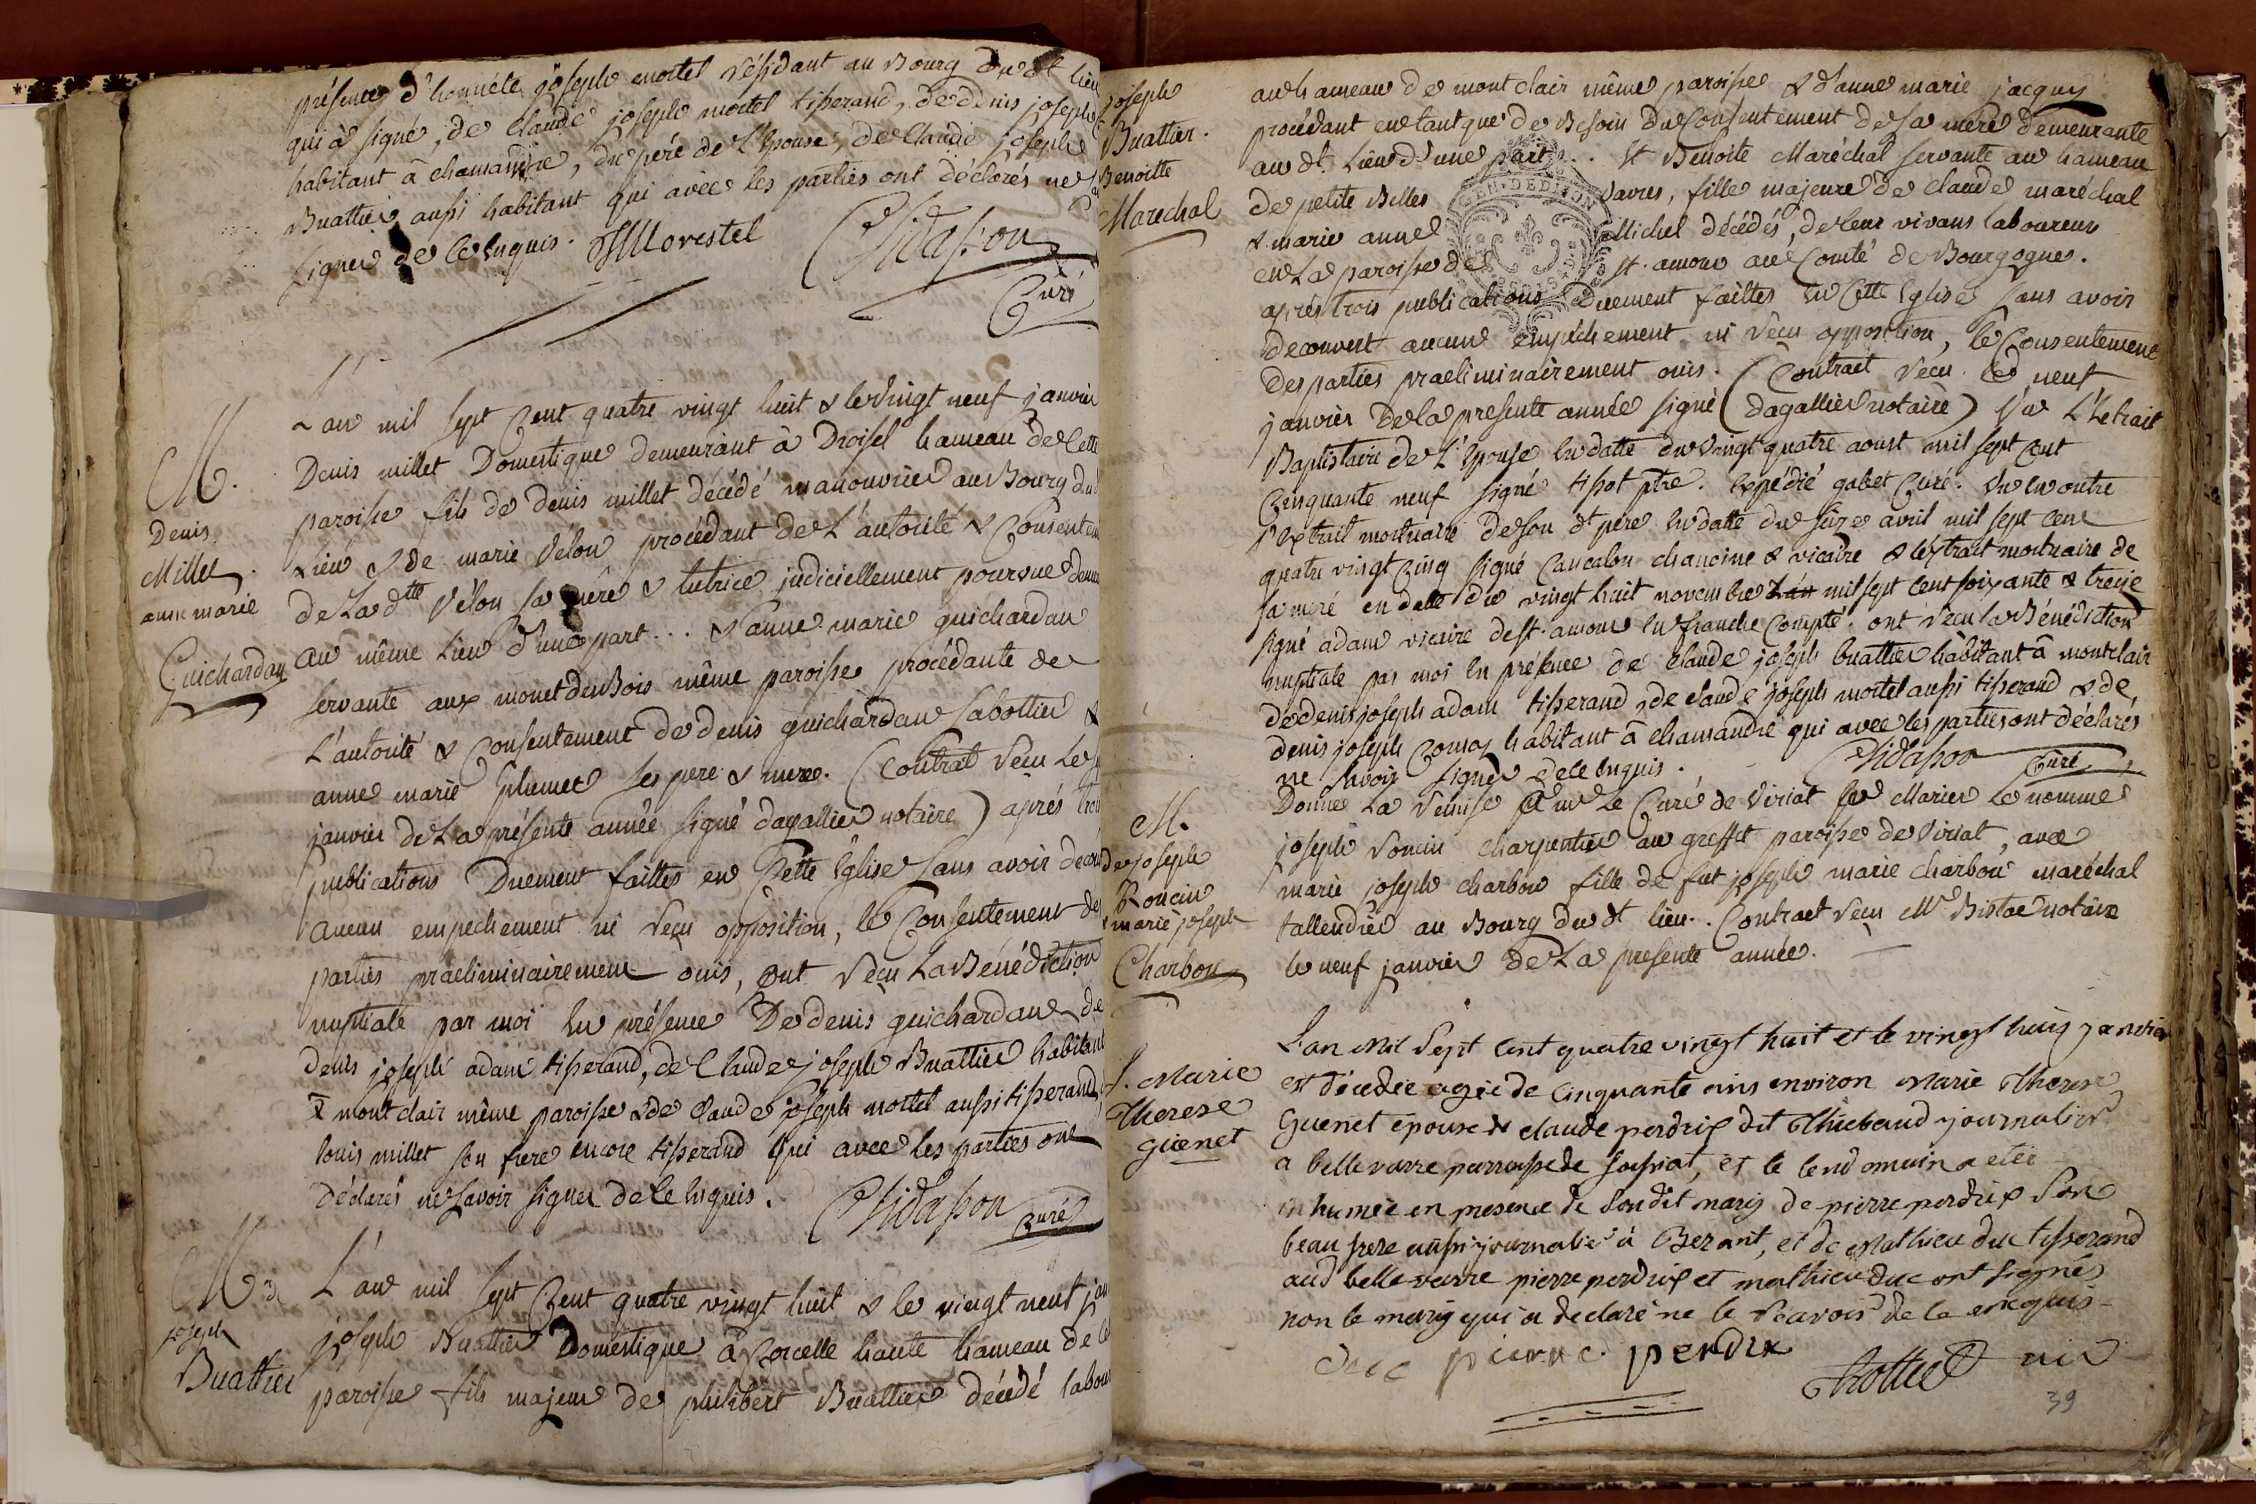 présence d'honnête joseph mortel résidant au Bourg du dt lieu
qui à signé, de Claude joseph mortel tisserand, de denis joseph
habitant à chamandre, du père de l'Epouse, de Claude joseph
Buattier aussi habitant qui avec les parties ont déclarés ne
signer de ce Enquis. Morestel Chidasson
Curé
M.
Denis
Millet
anne marie
Guichardan
L'an mil sept Cent quatre vingt huit & le vingt neuf janvier
Denis millet Domestique demeurant à Droisel hameau de Cette
paroisse fils de denis millet décédé manouvrier au Bourg dud
Lieu & de marie Vélon procédant de L'autorité & Consentem
de La dtte Vélon sa mère & tutrice judiciellement pourvue demeu
au même Lieu d'une part... & anne marie guichardan
servante aux monet du Bois même paroisse procédante de
L'autorité & Consentement de denis guichardan sabottier &
anne marie Plumet ses pere & mere. (Contrat Reçu Le
janvier de La présente année signé dagallier notaire) après trois
publications Duement faittes en Cette Eglise sans avoir decou
aucun empechement ni Reçu opposition, le Consentement des
parties praeliminairement ouis, ont Reçu La Bénédiction
nuptiale par moi En présence De denis guichardan, de
denis joseph adam tisserand, de Claude joseph Buattier habitant
à mont clair même paroisse & de Claude joseph mortel aussi tisserand,
louis millet son frere encore tisserand Qui avec les parties ont
Déclarés ne savoir signer de Ce Enquis. Chidasson Curé
M
joseph
Buattier
L'an mil sept Cent quatre vingt huit & le vingt neuf jan
joseph Buattier Domestique à Corcelle haute hameau de Ce
paroisse fils majeur de philibert Buattier décédé labou
joseph
Buattier.
Benoitte
Marechal
au hameau de mont clair même paroisse & d'anne marie jacquy
procédant en tant que de Besoin du Consentement de sa mere demeurante
au dt. Lieu d'une part... Et Benoite Maréchal servante au hameau
de petite Belles Vavres, fille majeure de claude maréchal
& marie anne Michel décédés, de leur vivans laboureurs
en La paroisse de st. amour au Comté de Bourgogne.
après trois publications Duement faittes En Cette Eglise sans avoir
decouvert aucun empêchement ni Reçu opposition, le Consentement
des parties praeliminairement ouis. (Contract Reçu Le neuf
janvier De la presente année signé (dagallier notaire) Vu L'Extrait
Baptistaire de L'Epouse En datte du vingt quatre aoust mil sept cent
Cinquante neuf signé tisot ptre. Expédié gabet Curé. Vu En outre
l'Extrait mortuaire de son dt père En datte du seize avril mil sept cent
quatre vingt Cinq signé Cancalon chanoine & vicaire & l'extrait mortuaire de
sa mere en datte du vingt huit novembre mil sept Cent soixante & treize
signé adam vicaire de st. amour En franche Compté. ont Reçu la Bénédiction
nuptiale par moi En présence de Claude joseph buattier habitant à montclair
de denis joseph adam tisserand, de claude joseph mortel aussi tisserand & de
denis joseph habitant à chamandre qui avec les parties ont déclarés
ne savoir signer de ce Enquis. Chidasson Curé
M.
de joseph
Roncin
& marie joseph
Charbon
Donné La Remise à Mr Le Curé de Viriat pr Marier Le nommé
joseph Roncin charpentier au greffet paroisse de Viriat, avec
marie joseph charbon fille de fut joseph marie charbon maréchal
tallendier au Bourg du dt lieu. Contract Reçu Me notaire
le neuf janvier de La presente année.
S. Marie
Therese
guenet
L'an Mil Sept cent quatre vingt huit et le vingt huit janvier
est décédée agée de Cinquante ans environ Marie Therese
Guenet épouse de claude perdrix dit Thiebaud journalier
a bellevavre parroisse de Jassriat, et le lendemain a etée
inhumée en presence de Son dit mary de pierre perdrix Son
beau frere aussi journalier à Bezant, et de Mathieu duc tisserand
aud bellevavre pierre perdrix et mathieu duc ont signés
non le mary qui a declaré ne le Scavoir de ce enquis
duc pierre perdrix
Trottier vic
39